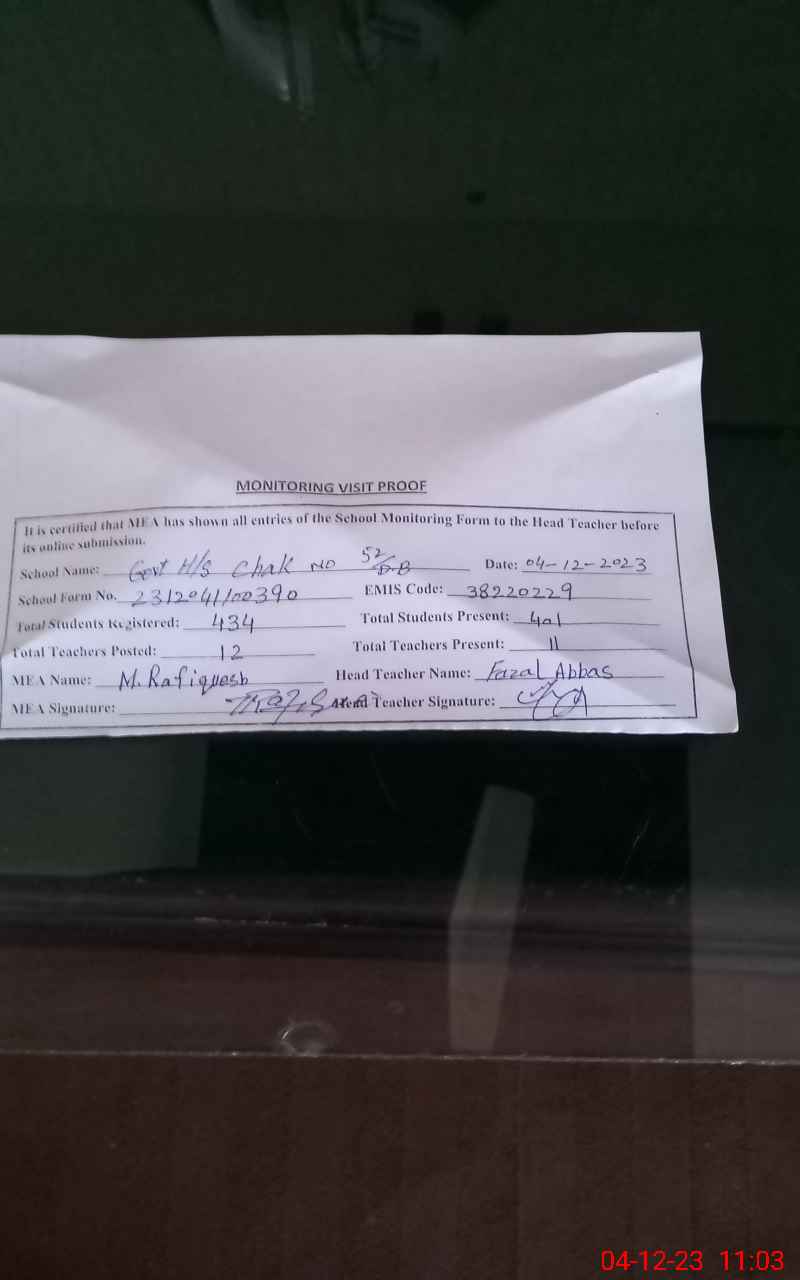 MONITORING VISIT PROOF
It is certified that MEA has shown all entries of the School Monitoring Form to the Head Teacher before
its online submission.
School Name: Govt H/S Chak NO 52/DB Date: 04-12-2023
School Form No. 2312041100390 EMIS Code: 38220229
Total Students Registered: 434 Total Students Present: 401
Total Teachers Posted: 12 Total Teachers Present: 11
MEA Name: M. Head Teacher Name: Fazal Abbas
MEA Signature: Head Teacher Signature:
04-12-23 11:03